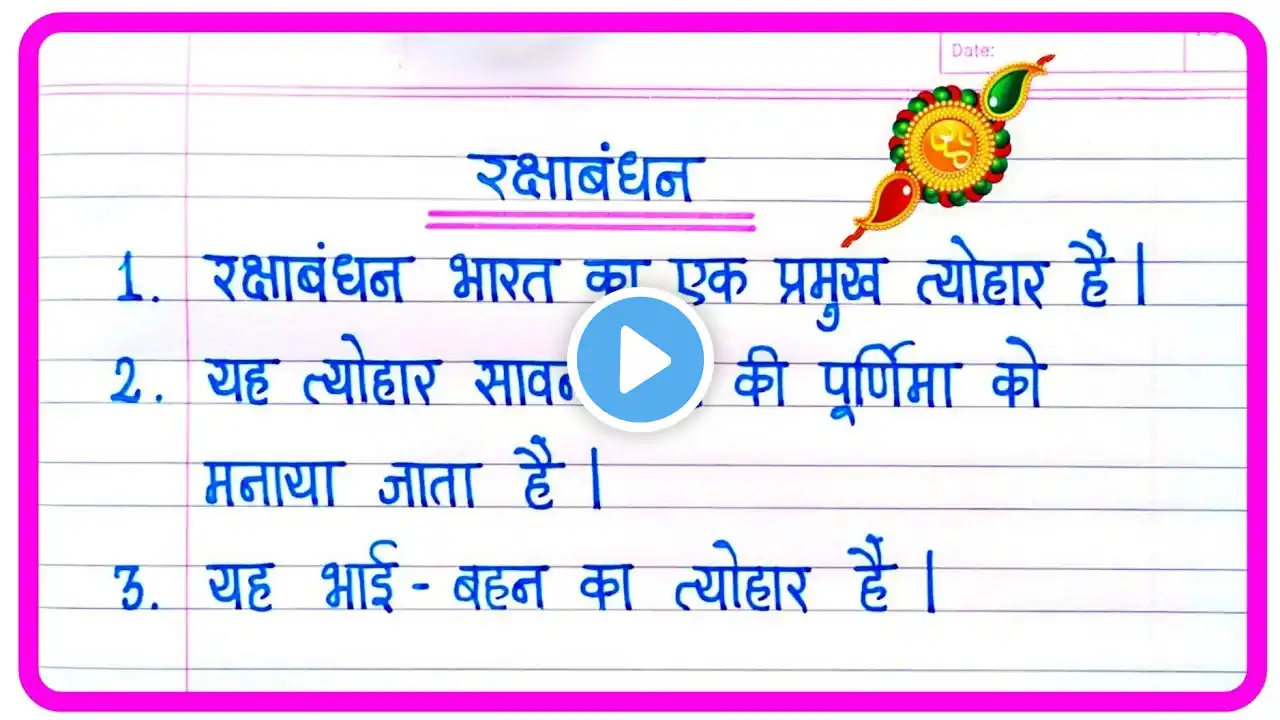 Date:
रक्षाबंधन
1. रक्षाबंधन भारत का एक प्रमुख त्योहार है।
2. यह त्योहार सावन की पूर्णिमा को
मनाया जाता है।
3. यह भाई-बहन का त्योहार है।